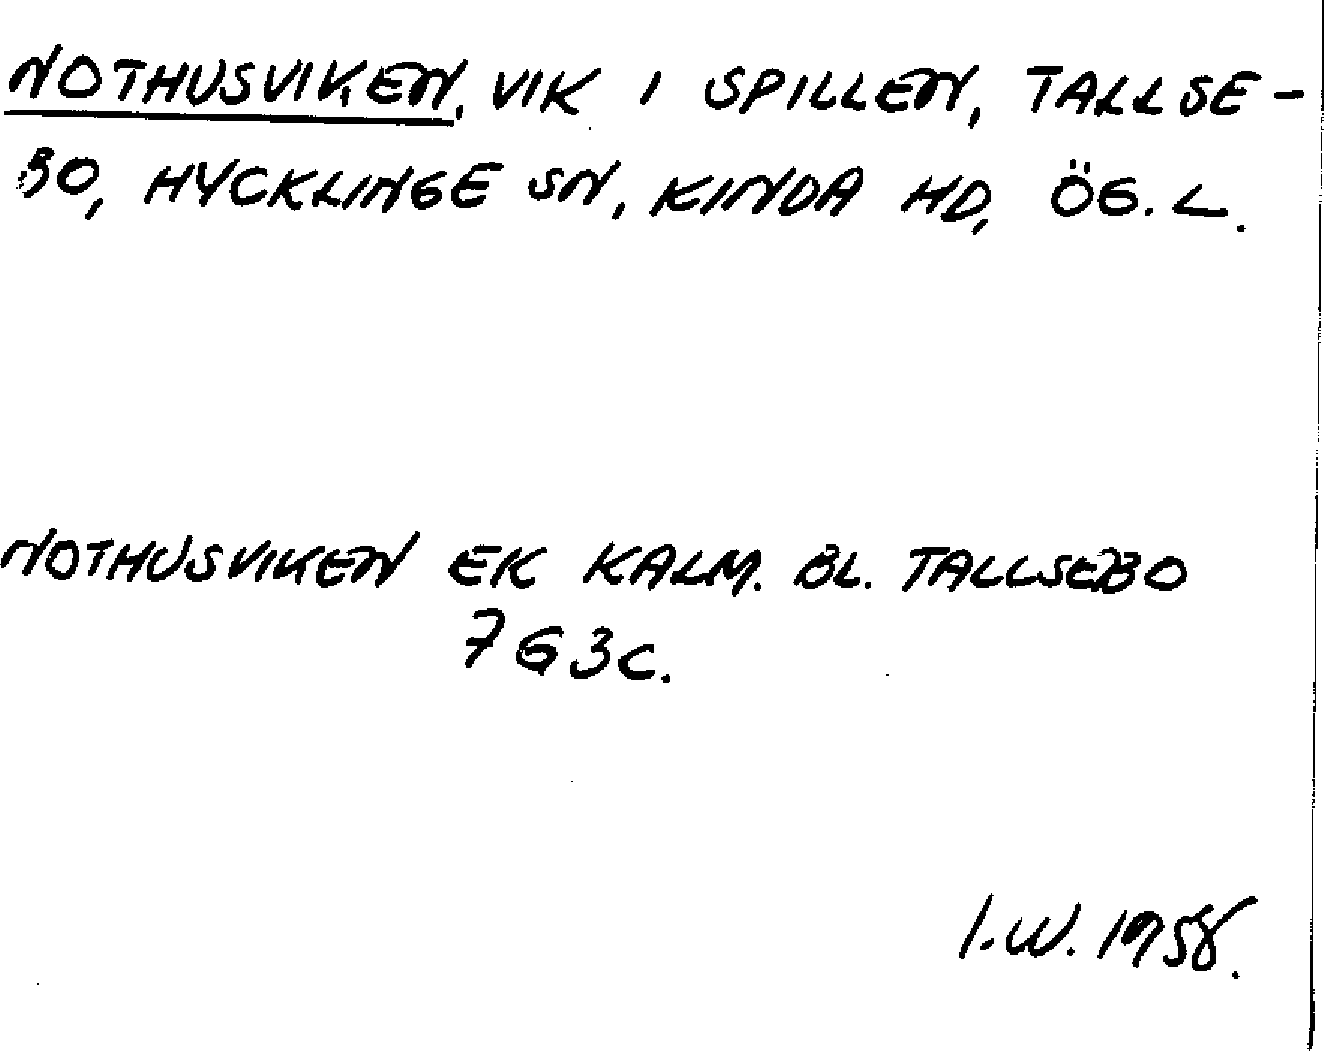 NOTHUSVIKEN, VIK I SPILLEN, TALLSE-
BO, HYCKLINGE SN, KINDA HD, ÖG. L.
NOTHUSVIKEN EK KALM. BL. TALLSEBO
7G3c.
I.W. 1958.